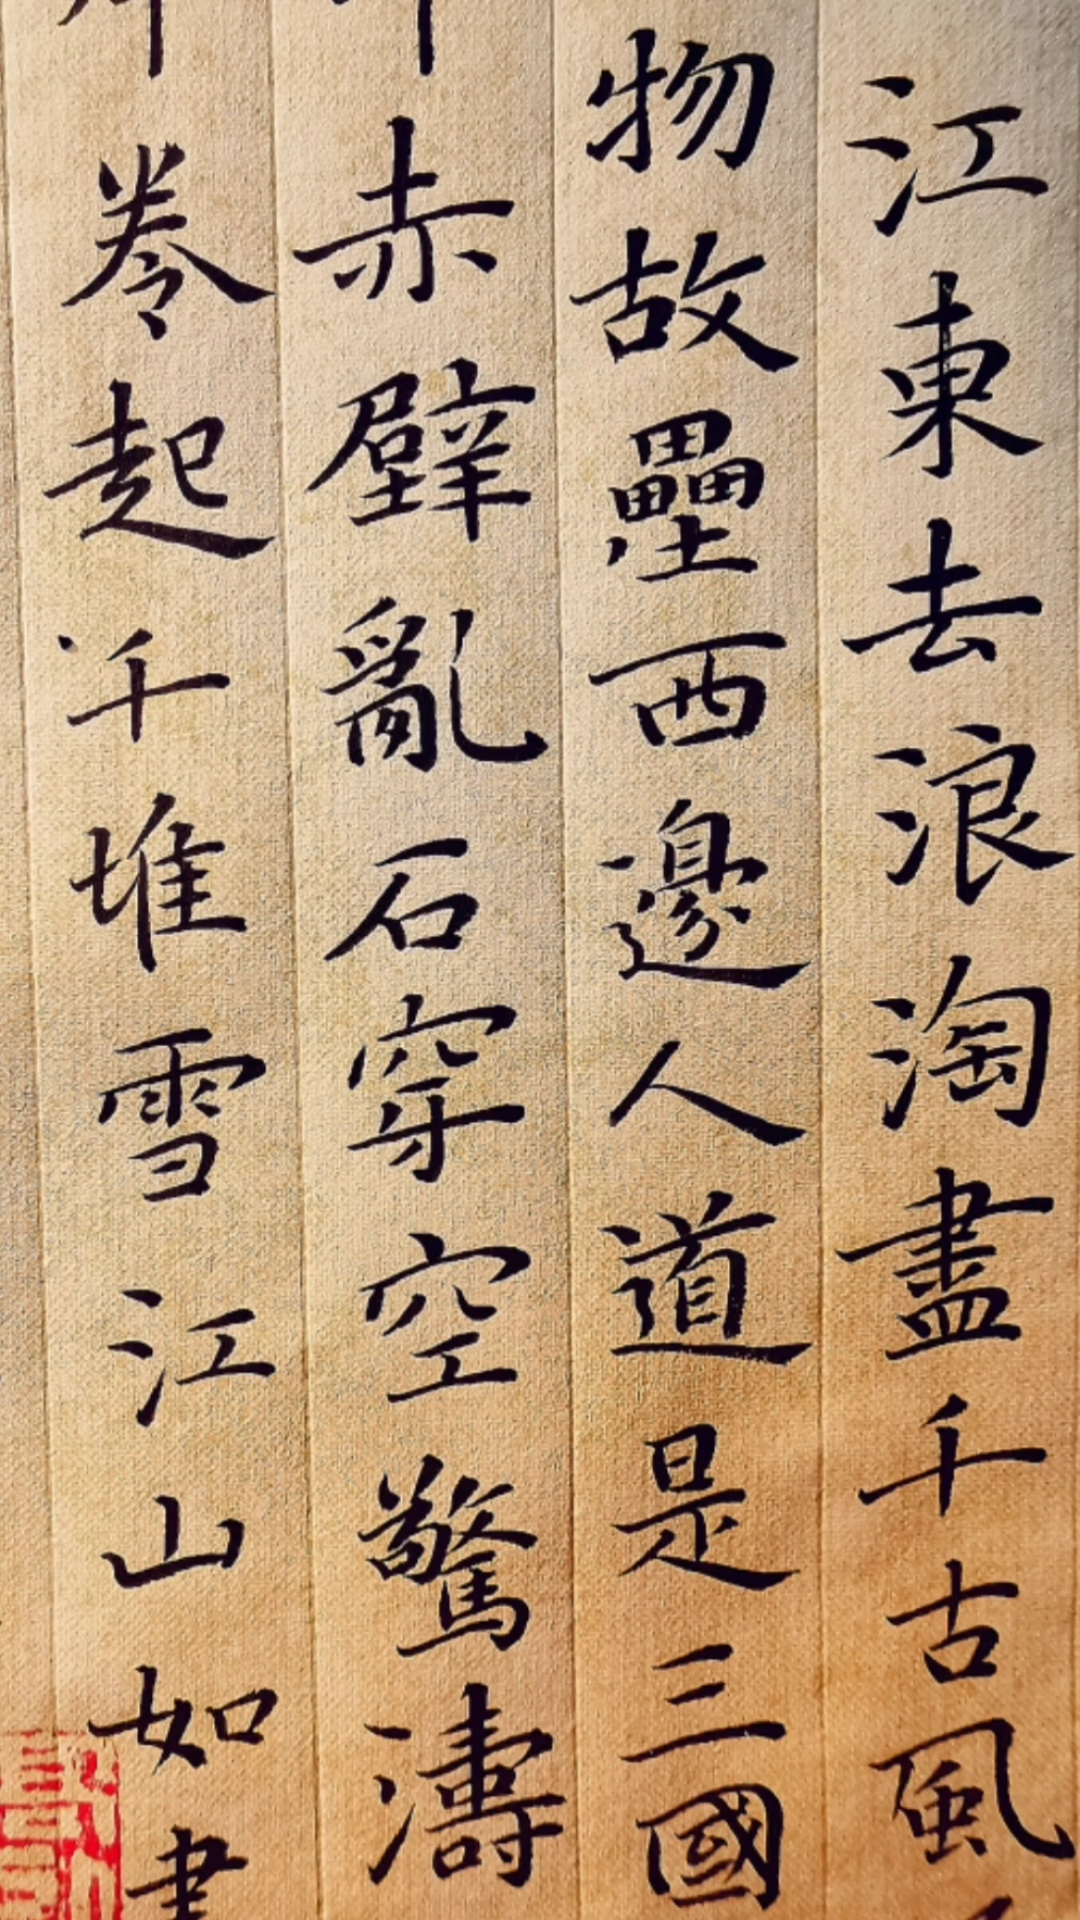 江東去浪淘盡千古風
物故壘西邊人道是三國
赤壁亂石穿空驚濤
卷起千堆雪江山如